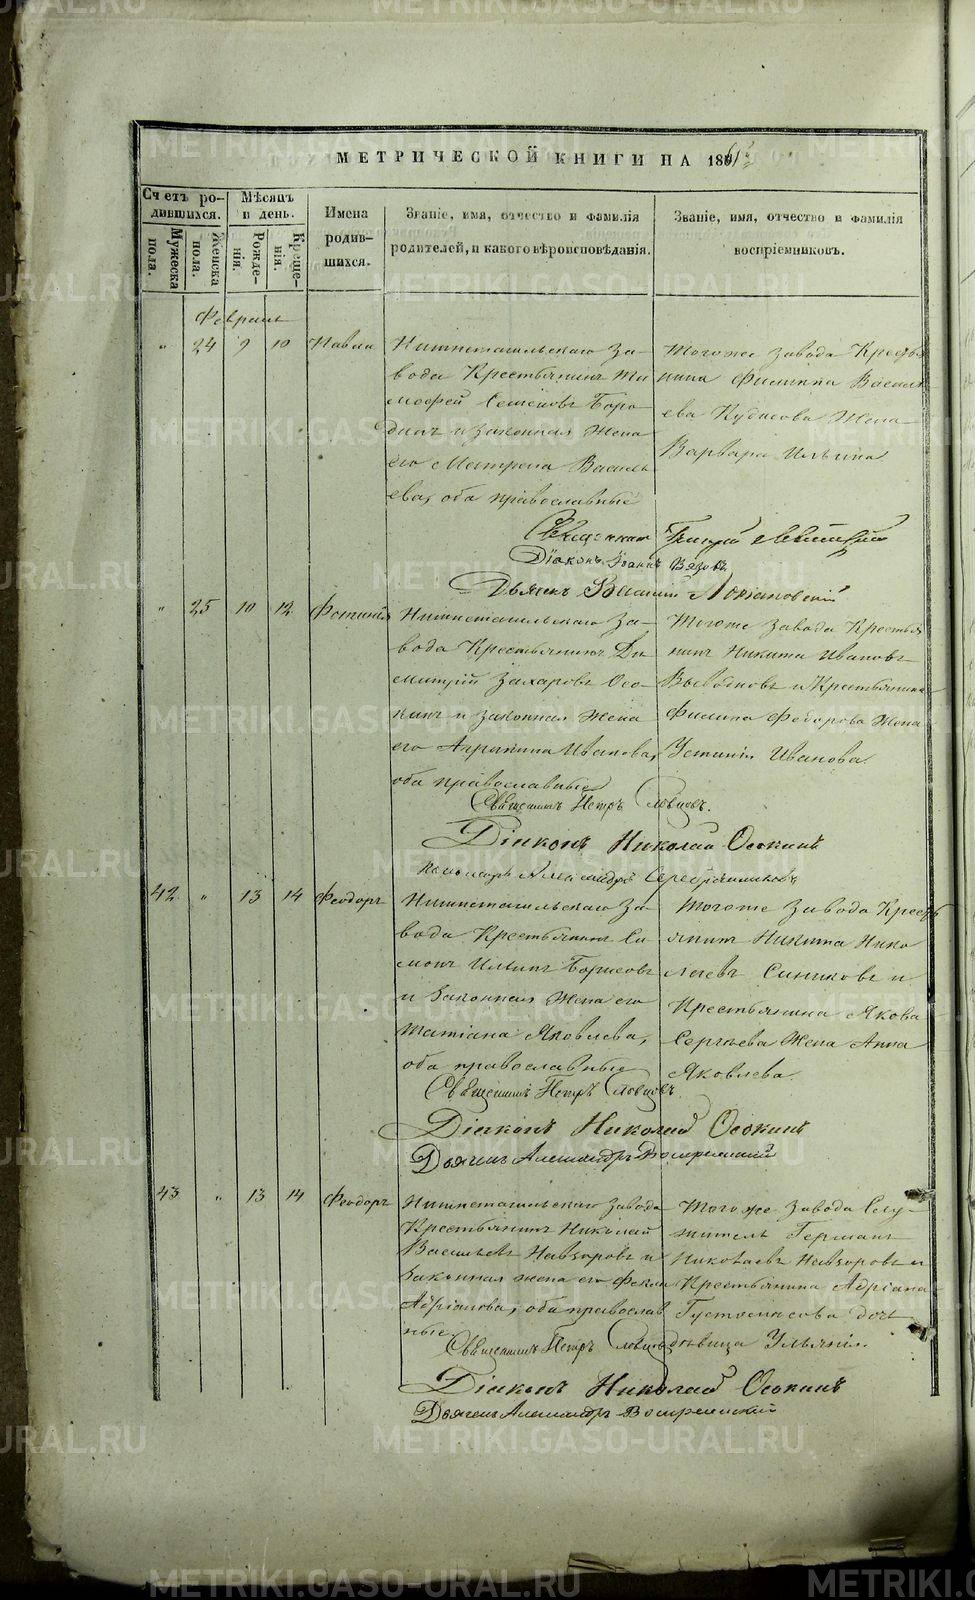 МЕТРИЧЕСКОЙ КНИГИ НА 1861й
Счетъ ро-
дившихся.
Мѣсяцъ
и день.
Имена
родив-
шихся.
Званіе, имя, отчество и фамилія
родителей, и какого вѣроисповѣданія.
Званіе, имя, отчество и фамилія
воспріемниковъ.
Мужеска
пола.
Женска
пола.
Рожде-
нія.
Креще-
нія.
Февраль
" 24 9 10 Павла
Нижнетагильскаго За-
вода Крестьянинъ Ти
мофей Семеновъ Боро
динъ и законная Жена
его Матрена Василь
ева, оба православные
Тогоже завода Кресть
янина Филиппа Василь
ева Кудисова Жена
Варвара Ильина
Священникъ Григорій Левитскій
Діаконъ Іоаннъ Вязовъ
Дьячекъ Василій
" 25 10 12 Фотинія
Нижнетагильскаго За-
вода Крестьянинъ Ди
митрій Захаровъ Осо
кинъ и законная Жена
его Агрипина Иванова,
оба православные
Тогоже завода Крестья
нинъ Никита Ивановъ
и Крестьянина
Филипа Федорова Жена
Устинія Иванова
Священникъ Петръ Словцовъ.
Діаконъ Николай Осокинъ
Пономарь Александръ Серебрянниковъ
42 " 13 14 Феодоръ
Нижнетагильскаго За-
вода Крестьянинъ Си
монъ Ильинъ Борисовъ
и Законная Жена его
Татіана Яковлева,
оба православные
Тогоже завода Кресть
янинъ Никита Нико
лаевъ Синиковъ и
Крестьянина Якова
Сергѣева Жена Анна
Яковлева
Священникъ Петръ Словцовъ
Діаконъ Николай Осокинъ
Дьячекъ Александръ Воскресенскій
43 " 13 14 Феодоръ
Нижнетагильскаго завода
Крестьянинъ Николай
Васильевъ Невзоровъ и
Законная жена его Фекла
Адріанова, оба православ
ные
Тогоже завода Слу-
житель Германъ
Николаевъ Невзоровъ и
Крестьянина Адріана
Густомесова дочь
дѣвица Ульянія.
Священникъ Петръ Словцовъ
Діаконъ Николай Осокинъ
Дьячекъ Александръ Воскресенскій
METRIKI.GASO-URAL.RU